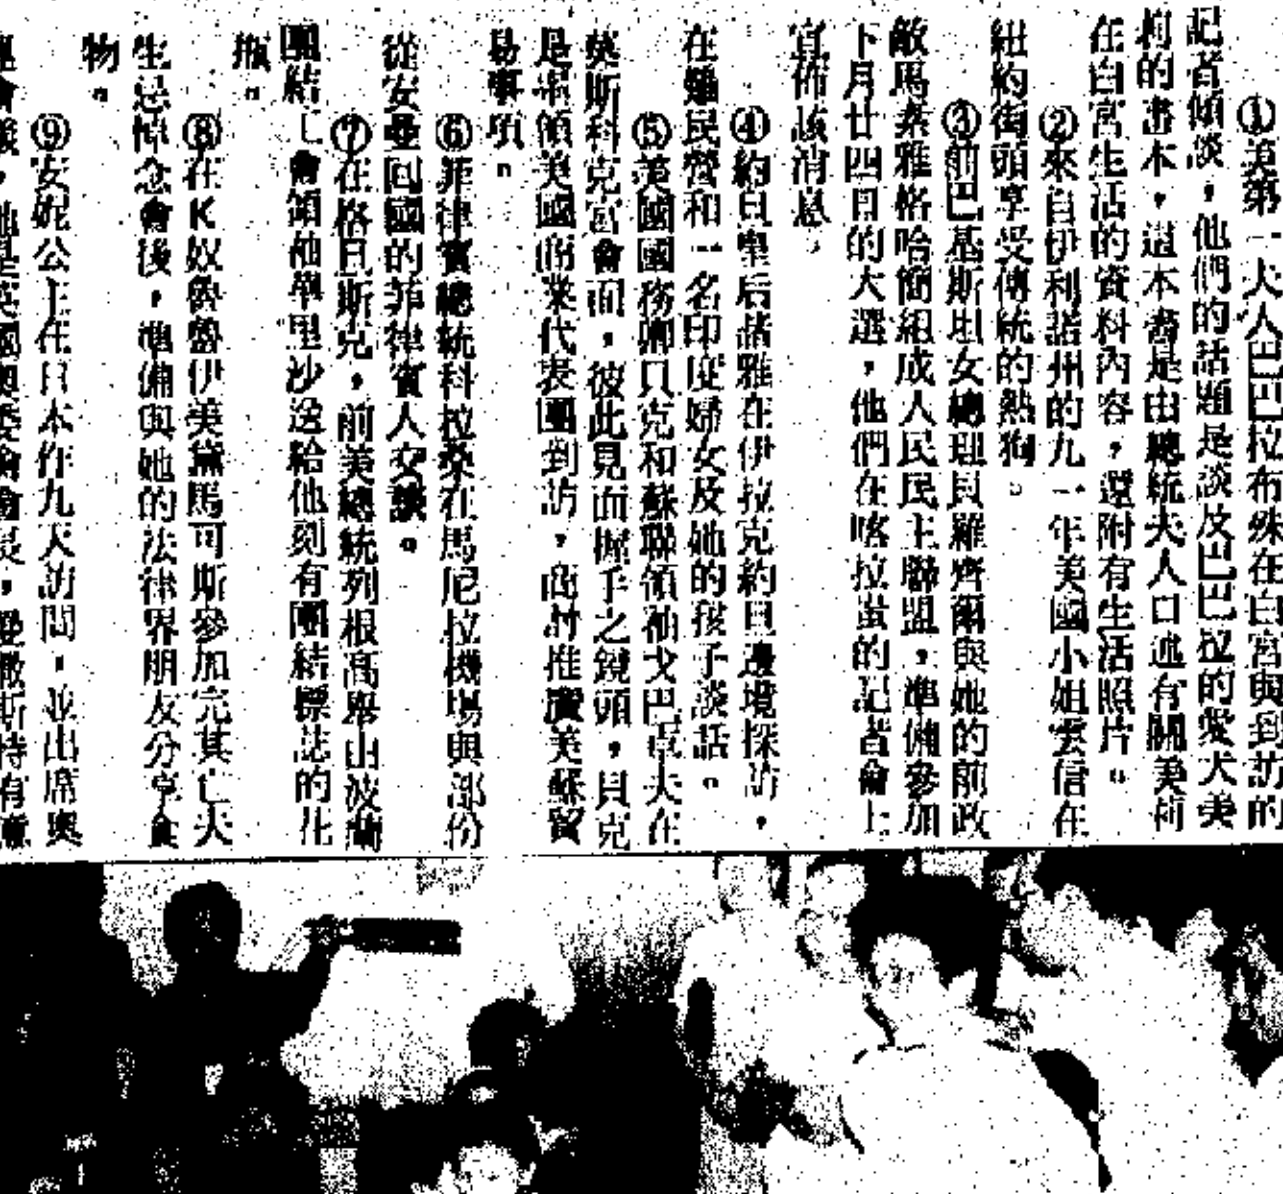 ①美第一夫人巴巴拉布殊在白宮與到訪的
記者傾談，他們的話題是談及巴巴拉的愛犬美
莉的畫本，這本書是由總統夫人口述有關美莉
在白宮生活的資料內容，還附有生活照片。
②來自伊利諾州的九一年美國小姐雲信在
紐約街頭享受傳統的熱狗。
③前巴基斯坦女總理貝羅齊爾與她的前政
敵馬素雅格哈簡組成人民民主聯盟，準備參加
下月廿四日的大選，他們在喀拉蚩的記者會上
宣佈該消息。
④約旦皇后諾雅在伊拉克約旦邊境探訪，
在難民營和一名印度婦女及她的孩子談話。
⑤美國國務卿貝克和蘇聯領袖戈巴卓夫在
莫斯科克宮會面，彼此見面握手之鏡頭，貝克
是率領美國商業代表團到訪，商討推廣美蘇貿
易事項。
⑥菲律賓總統科拉桑在馬尼拉機場與部份
從安曼回國的菲律賓人交談。
⑦在格旦斯克，前美總統列根高舉由波蘭
團結工會領袖華里沙送給他刻有團結標誌的花
瓶。
⑧在K奴魯魯伊美黛馬可斯參加完其亡夫
生忌悼念會後，準備與她的法律界朋友分享食
物。
⑨安妮公主在日本作九天訪問，並出席奧
運會議，她是英國奧委會會長，愛撒斯特有